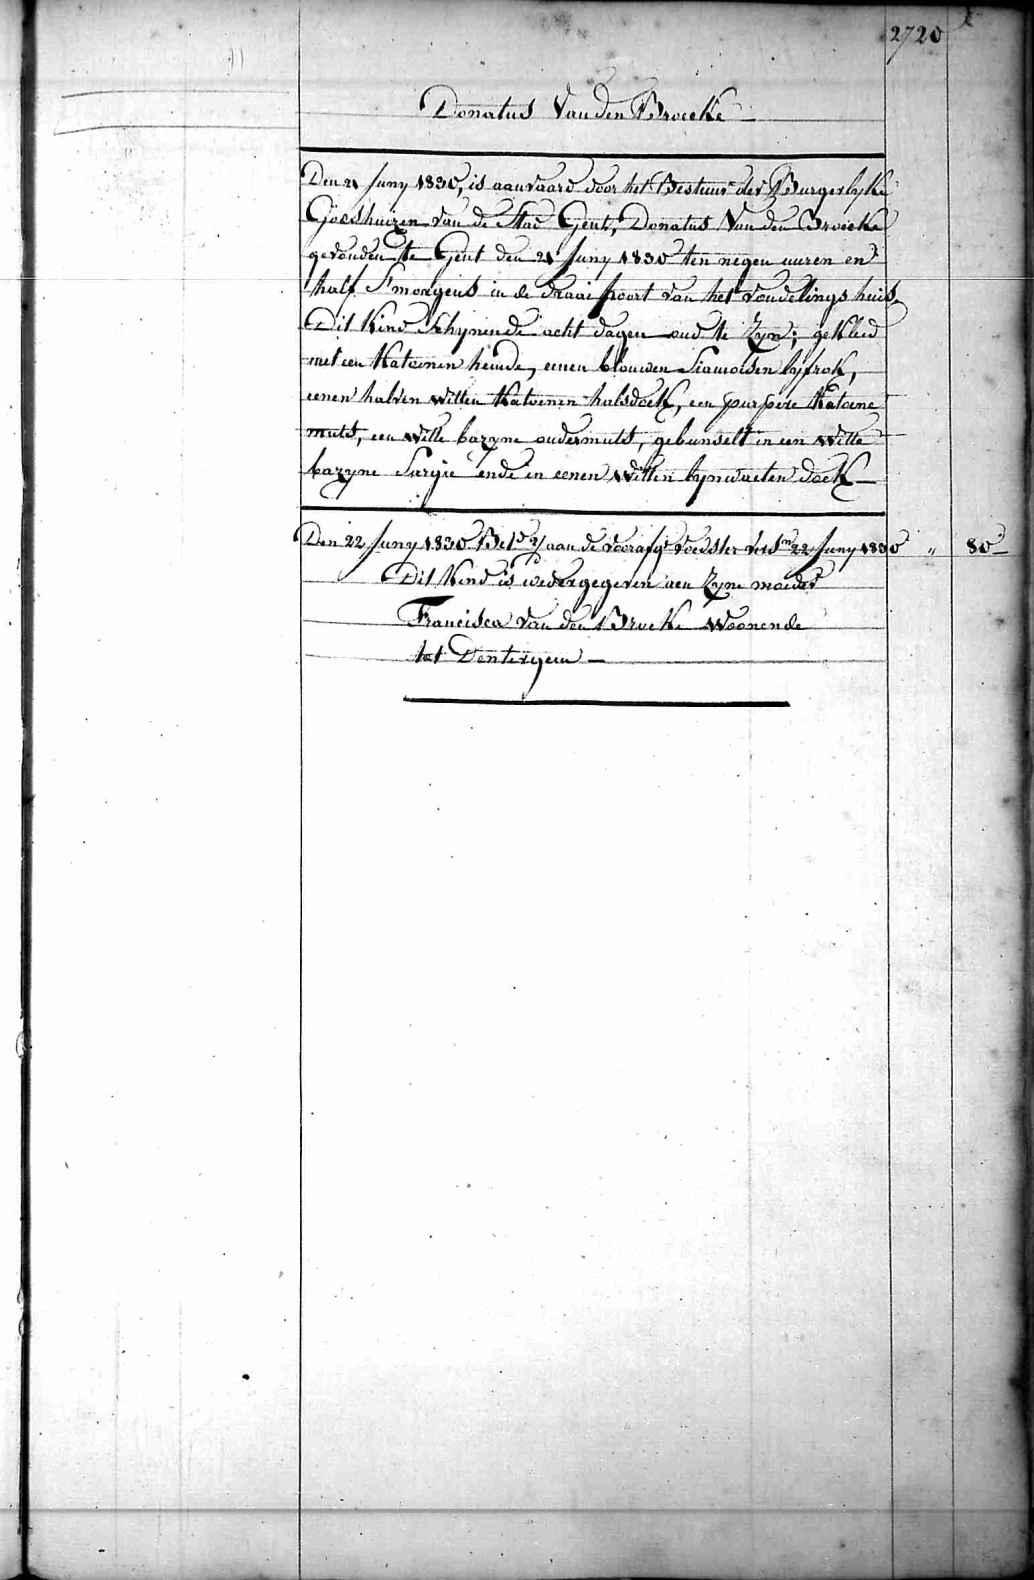 2720
Donatus Van den Broecke
Den 21 Juny 1830, is aanvaard door het Bestuur der Burgerlyke
Godshuizen van de Stad Gent, Donatus Van den Broecke
gevonden te Gent den 21 Juny 1830 ten negen uuren en
half S'morgens in de draaipoort van het vondelingshuis,
Dit Kind Schynende acht dagen oud te Zyn; gekleed
met een Katoenen hemde, eenen blouwen Siamoisen lyfrok,
eenen halven witten Katoenen halsdoek, een purpere Katoene
muts, een witte bazyne ondermuts, gebunselt in een witte
bazyne Surgie ende in eenen witten lynwaeten doek
Den 22 Juny 1830 Bet^d aan de voorafg^e voedster 22 Juny 1830 " 80
Dit Kind is wedergegeven aen Zyne moeder
Francisca Van den Broeke Woonende
tot Dentergem